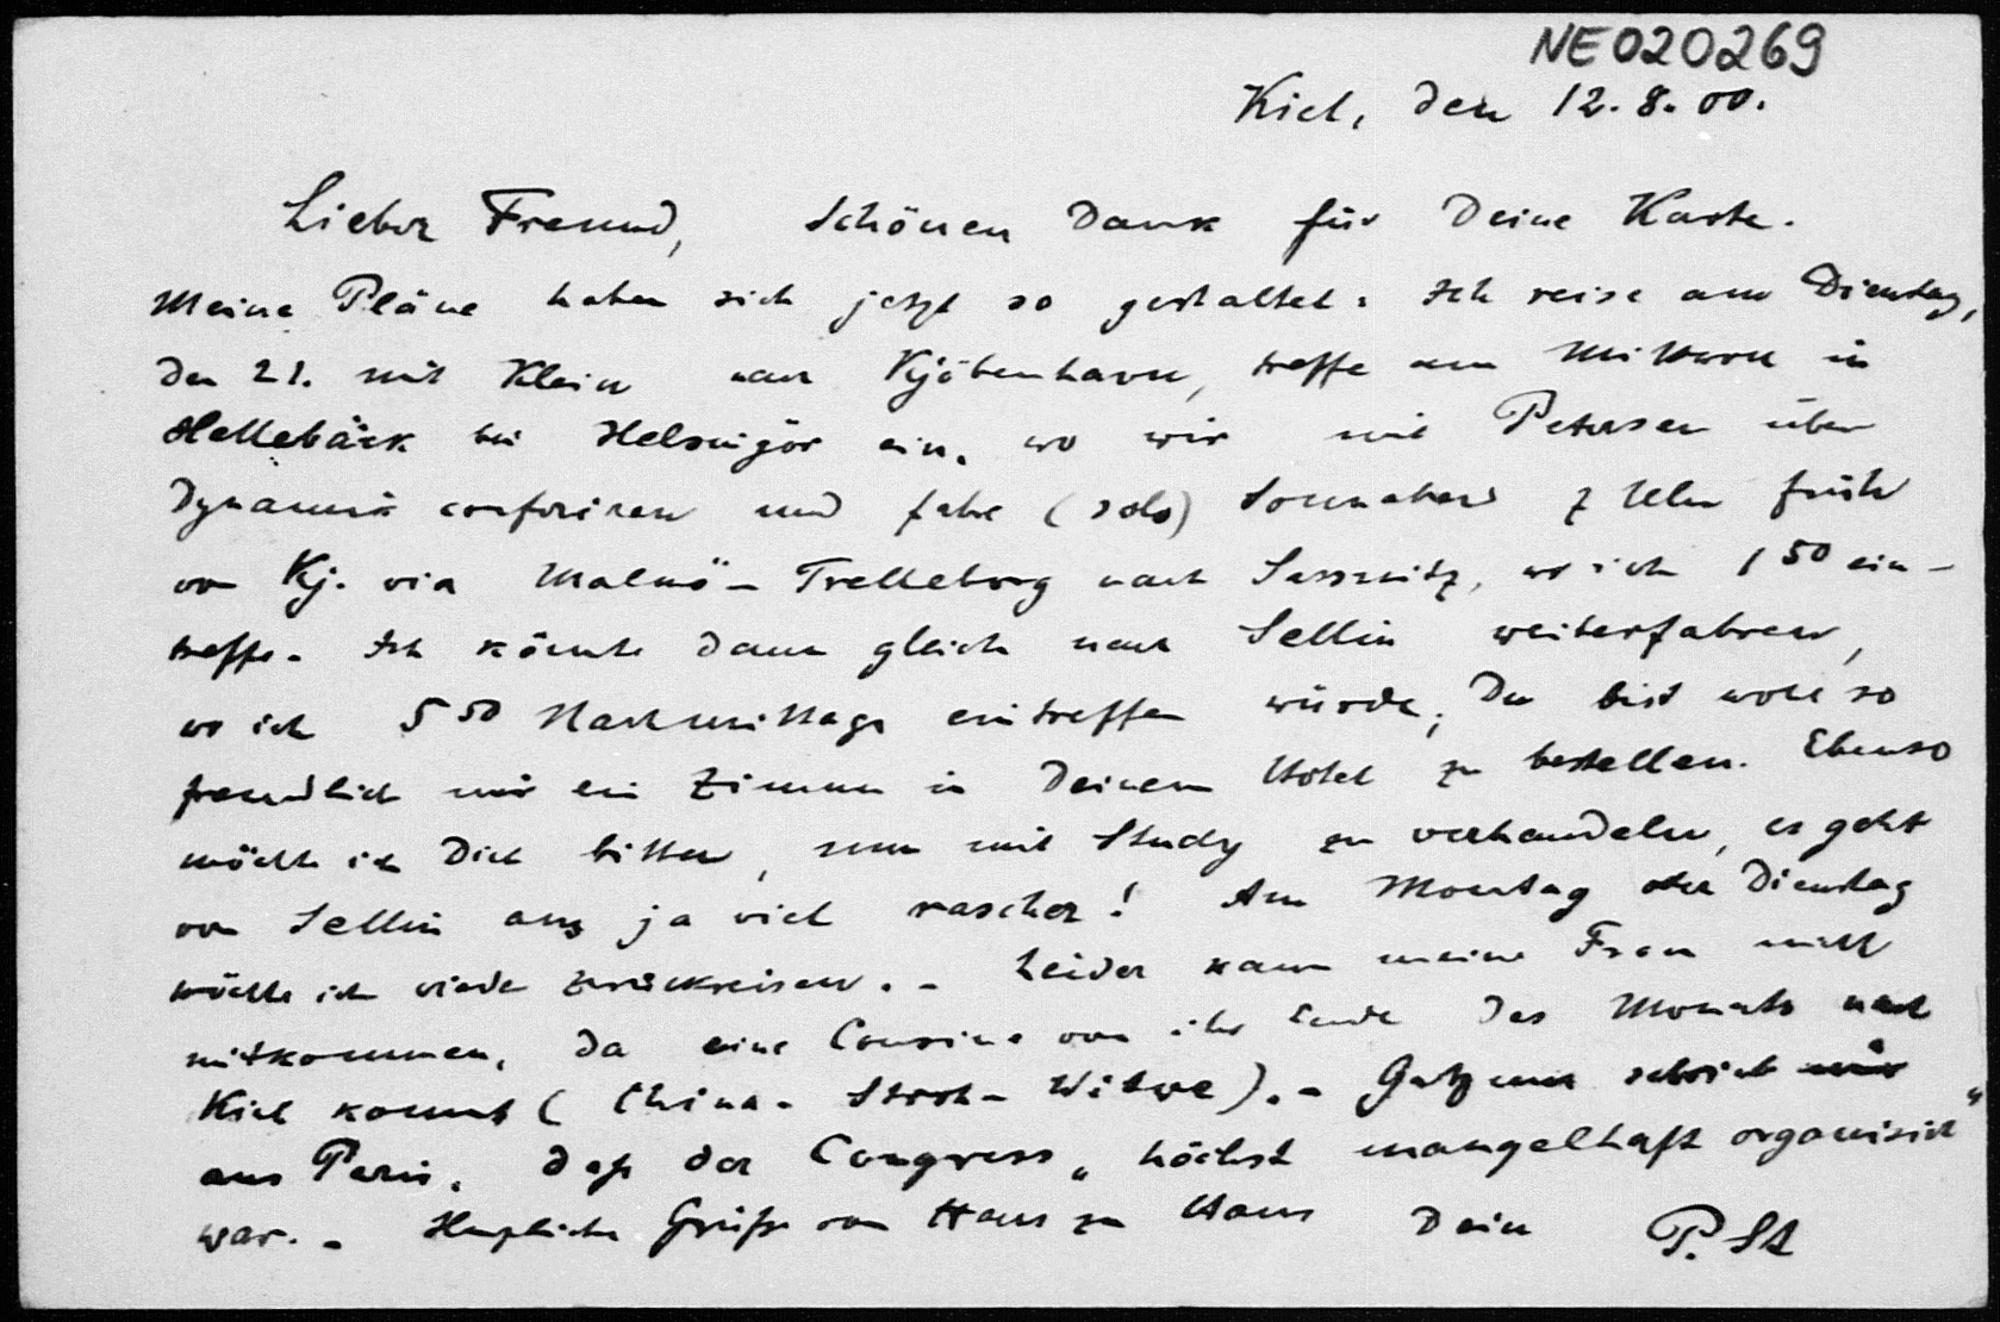 NE020269
Kiel, den 12.8.00.
Lieber Freund, Schönen Dank für Deine Karte.
Meine Pläne haben sich jetzt so gestaltet: Ich reise am Dienstag,
den 21. mit Klein nach Kjöbenhavn, treffe am Mittwoch in
Hellebäck bei Helsingör ein, wo wir mit Petersen über
Dynamik conferiren und fahre (solo) Sonnabend 7 Uhr früh
von Kj. via Malmö - Trelleborg nach Sassnitz, wo ich 1 50 ein-
treffe. Ich könnte dann gleich nach Sellin weiterfahren,
wo ich 5 50 Nachmittags eintreffen würde; Du bist wohl so
freundlich mir ein Zimmer in Deinem Hotel zu bestellen. Ebenso
möchte ich Dich bitten, nun mit Study zu verhandeln, es geht
von Sellin aus ja viel rascher! Am Montag oder Dienstag
möchte ich wieder zurückreisen. - Leider kann meine Frau nicht
mitkommen, da eine Cousine von ihr Ende des Monats nach
Kiel kommt (China - Stroh - Witwe). - Gutzmer schrieb mir
aus Paris, daß der Congress „höchst mangelhaft organisirt"
war. - Herzliche Grüße von Haus zu Haus Dein P. St